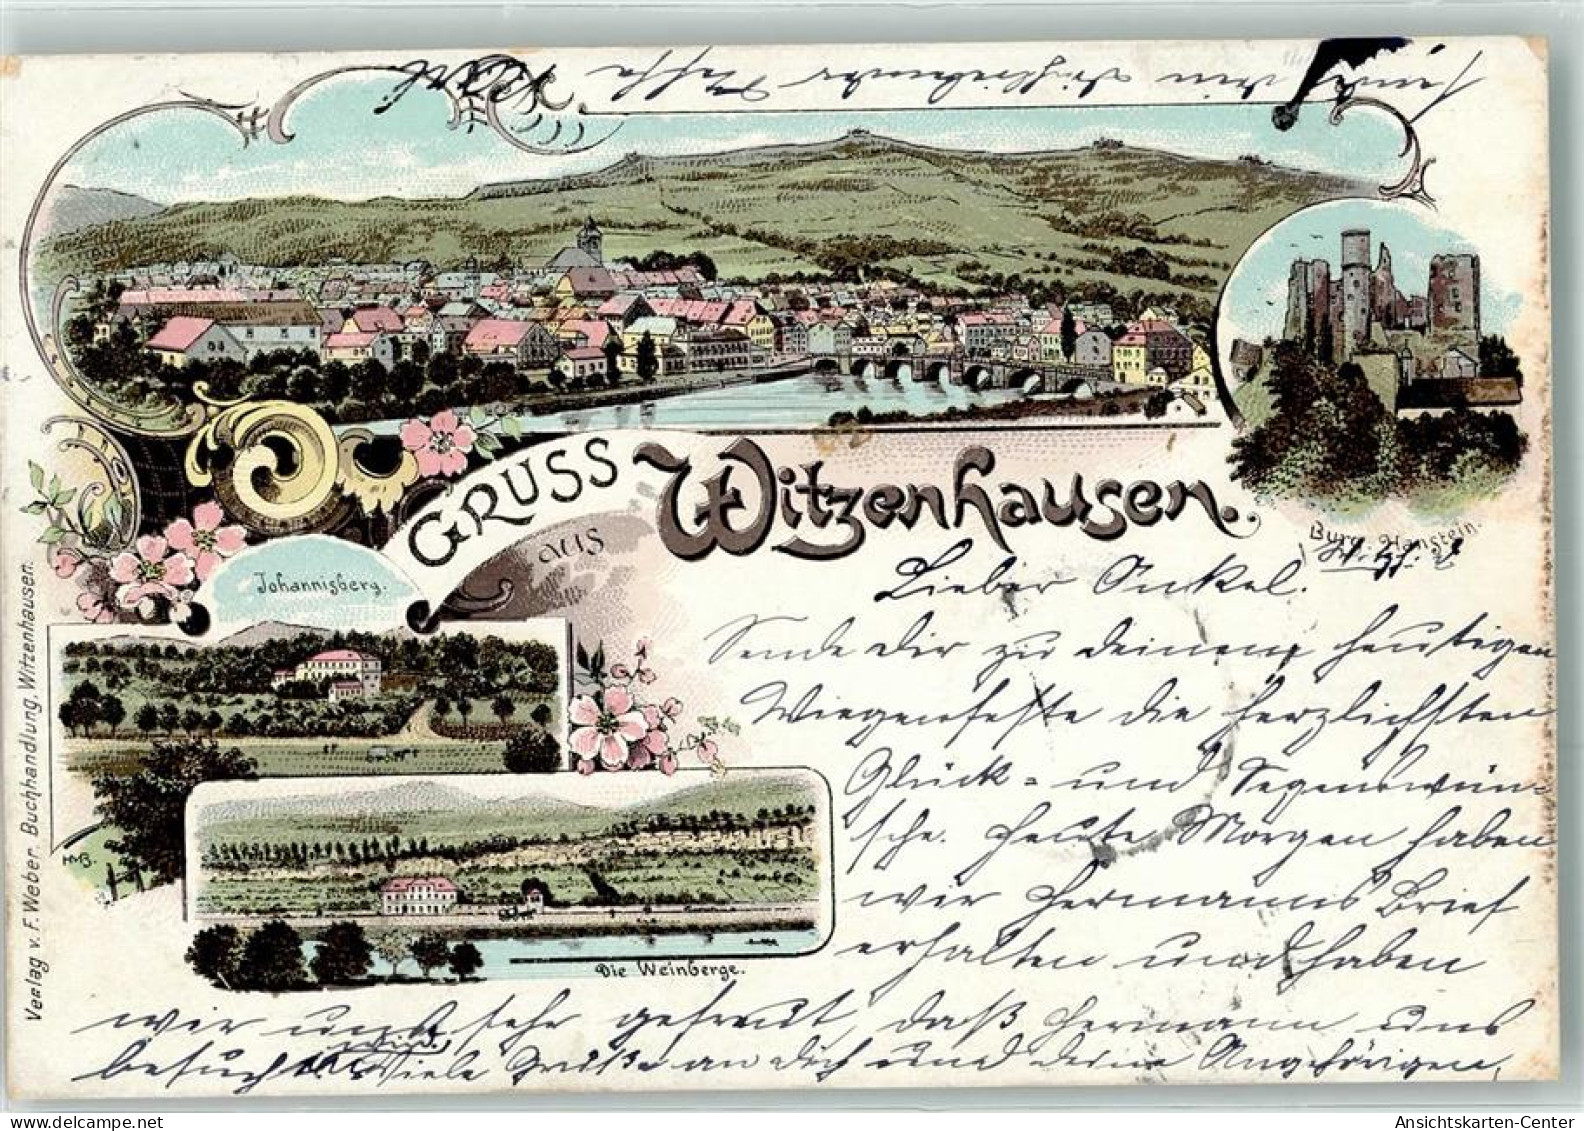 GRUSS
aus
Witzenhausen.
Burg Hanstein.
Johannisberg.
Die Weinberge.
M.B.
Verlag v. F. Weber. Buchhandlung, Witzenhausen.
Lieber Onkel.
Sende Dir zu deinem heutigen
Wiegenfeste die herzlichsten
Glück- und Segenswün-
sche. Heute Morgen haben
wir Hermanns Brief
erhalten und haben
wir uns sehr gefreut, daß Hermann uns
besucht Viele Grüße an Dich und deine Angehörigen,
wird,
von
delcampe.net
Ansichtskarten-Center